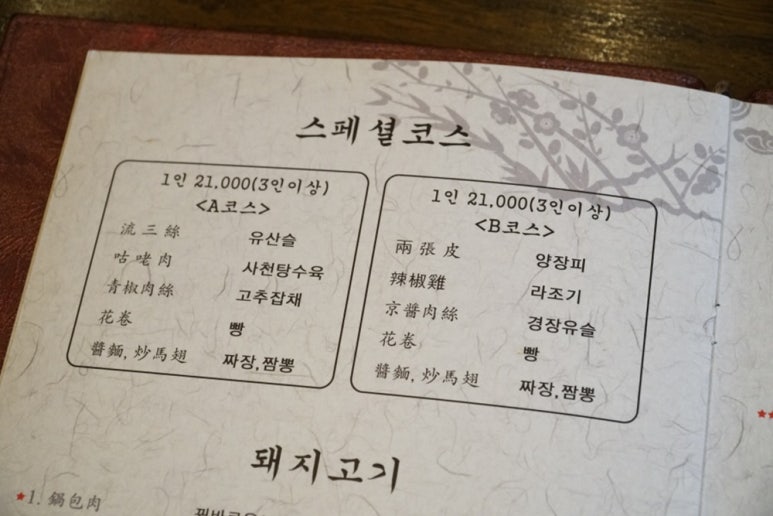 스페셜코스
1인 21,000(3인이상)
<A코스>
流三絲 유산슬
咕咾肉 사천탕수육
青椒肉絲 고추잡채
花卷 빵
醬麵,炒馬翅 짜장,짬뽕
1인 21,000(3인이상)
<B코스>
兩張皮 양장피
辣椒雞 라조기
京醬肉絲 경장유슬
花卷 빵
醬麵,炒馬翅 짜장,짬뽕
돼지고기
★1. 鍋包肉